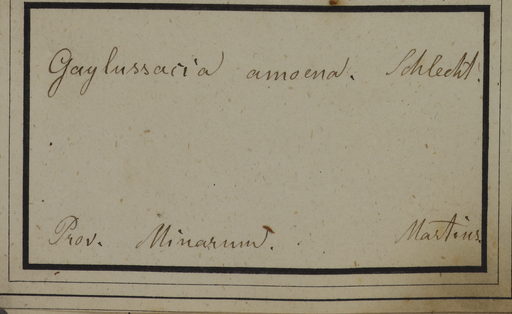 Gaylussacia amoena. Schlecht.
Prov. Minarum. Martius.